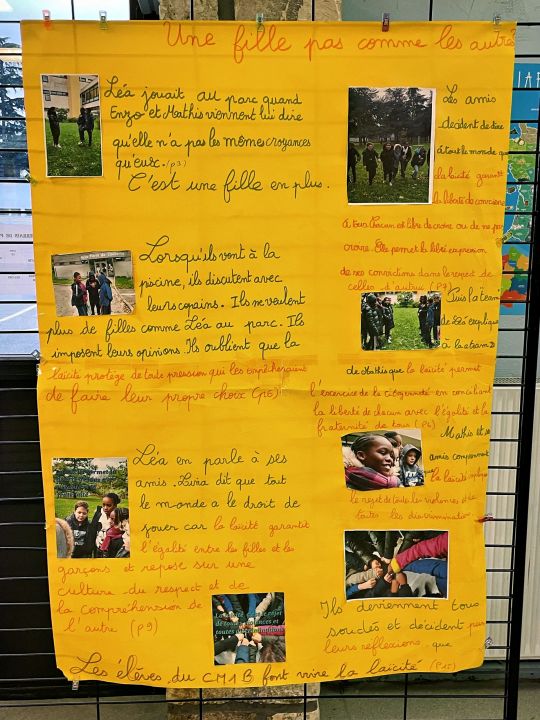 Une fille pas comme les autres
Léa jouait au parc quand
Enzo et Mathis viennent lui dire
qu'elle n'a pas les mêmes croyances
qu'eux. (p3)
C'est une fille en plus.
Lorsqu'ils vont à la
piscine, ils discutent avec
leurs copains. Ils ne veulent
plus de filles comme Léa au parc. Ils
imposent leurs opinions. Ils oublient que la
laïcité protège de toute pression qui les empêcheraient
de faire leur propre choix (p6)
Léa en parle à ses
amis. Livia dit que tout
le monde a le droit de
jouer car la laïcité garantit
l'égalité entre les filles et les
garçons et repose sur une
culture du respect et de
la compréhension de
l'autre (p9)
Les amis
décident de dire
à tout le monde que
la laïcité garantit
la liberté de conscience
à tous. Chacun est libre de croire ou de ne pas
croire. Elle permet la libre expression
de ses convictions dans le respect de
celles d'autrui (P7)
Puis la team
de Léa explique
à la team
de Mathis que la laïcité permet
l'exercice de la citoyenneté en conciliant
la liberté de chacun avec l'égalité et la
fraternité de tous (P4)
Mathis et ses
amis comprennent
que la laïcité
le rejet de toutes les violences et de
toutes les discriminations
la laïcité, c'est le rejet
de toutes les violences et
toutes discriminations
Ils deviennent tous
soudés et décident
leurs réflexions que
Les élèves du CM1B font vivre la laïcité (P15)